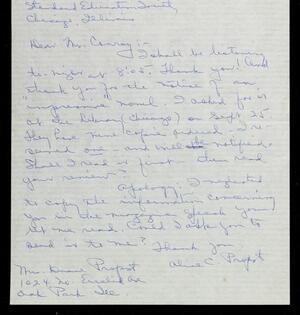 Standard Education Society
Chicago, Illinois
Dear Mr. Conroy:-
I shall be listening
to-night at 8:05. Thank you! And
thank you for the notice of an
"impressive" novel. I asked for it
at the Library (Chicago) on Sept. 25.
They have nine copies ordered - I re-
served one - and will be notified.
Shall I read it first - then read
your review?
Apology:- I neglected
to copy the information concerning
you in the magazine you
let me read. Could I ask you to
send it to me? Thank you.
Alice C. Propst
Mrs. Duane Propst
1024 No. Euclid Av
Oak Park Ill.